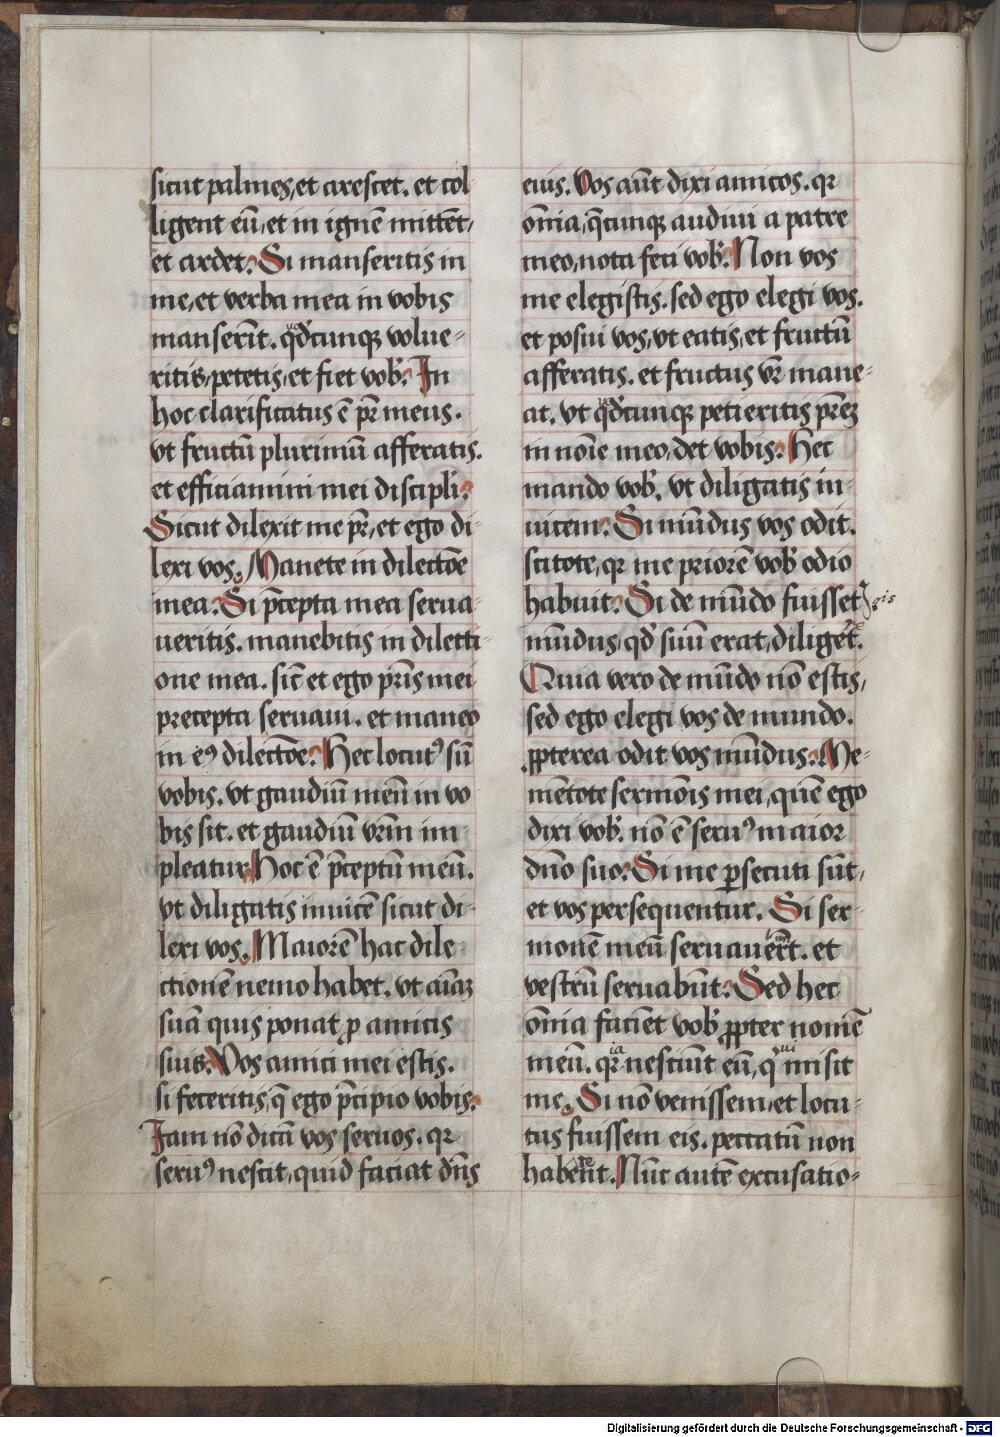 sicut palmes, et arescet. et col
ligent eū, et in ignē mittēt,
et ardet. Si manseritis in
me, et verba mea in vobis
manserīt. qdcunqꝫ volue-
ritis, petetis, et fiet vob̓. In
hoc clarificatus ē pr̄ meus.
vt fructū plurimū afferatis.
et efficiamini mei discipli.
Sicut dilexit me pr̄, et ego di-
lexi vos. Manete in dilectōe
mea. Si p̄cepta mea serua-
ueritis. manebitis in dilecti-
one mea. sic̄ et ego pr̄is mei
precepta seruaui. et maneo
in eꝰ dilectōe. Hec locutꝰ sū
vobis. vt gaudiū meū in vo
bis sit. et gaudiū vr̄m im-
pleatur. Hoc ē p̄ceptū meū.
vt diligatis inuicē sicut di-
lexi vos. Maiorē hac dile-
ctionē nemo habet. vt aīaꝫ
suā quis ponat ꝓ amicis
suis. Vos amici mei estis.
si feceritis, q̄ ego p̄cipio vobis.
Iam nō dicā vos seruos. qꝛ
seruꝰ nescit, quid faciat dn̄s
eius. Vos aūt dixi amicos. qꝛ
om̄ia, q̄cunqꝫ audiui a patre
meo, nota feci vob̓. Non vos
me elegistis. sed ego elegi vos.
et posui vos, vt eatis, et fructū
afferatis. et fructus vr̄ mane-
at. vt qdcunqꝫ petieritis pr̄eꝫ
in noīe meo, det vobis. Hec
mando vob̓. vt diligatis in-
uicem. Si mūdus vos odit.
scitote, qꝛ me priorē vob̓ odio
habuit. Si de mūdo fuisset
is
mūdus, qd̓ suū erat, diligeret.
Quia vero de mūdo nō estis,
sed ego elegi vos de mundo.
ꝓpterea odit vos mūdus. Me-
mētote sermōis mei, quē ego
dixi vob̓. nō ē seruꝰ maior
dn̄o suo. Si me ꝑsecuti sūt,
et vos persequentur. Si ser-
monē meū seruauerūt. et
vestrū seruabūt. Sed hec
om̄ia faciēt vob̓ ꝓpter nomē
meū. quia nesciūt eū, qui misit
me. Si nō venissem, et locu-
tus fuissem eis. peccatū non
haberēt. Nūc autē excusatio-
Digitalisierung gefördert durch die Deutsche Forschungsgemeinschaft - DFG